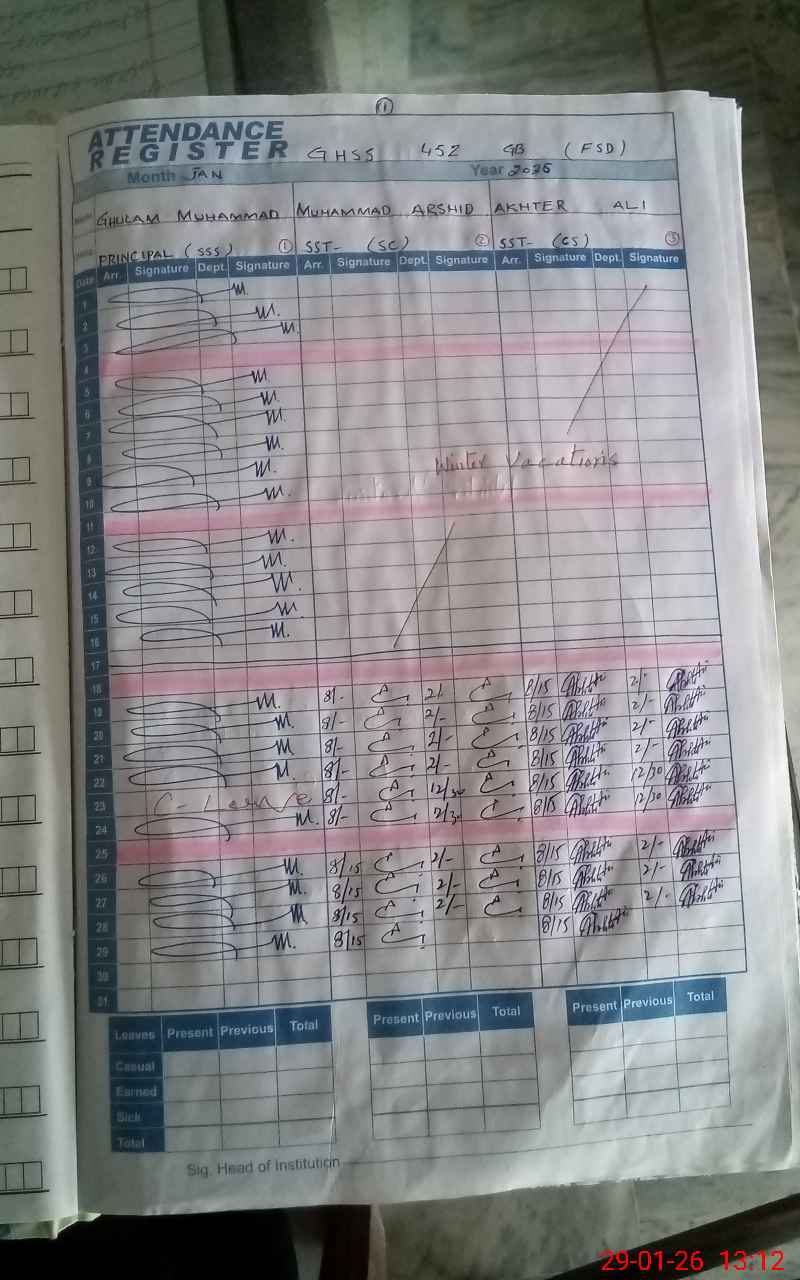 1
ATTENDANCE
REGISTER GHSS 452 GB (FSD)
Month JAN Year 2026
GHULAM MUHAMMAD MUHAMMAD ARSHID AKHTER ALI
PRINCIPAL (SSS) 1 SST- (SC) 2 SST- (CS) 3
Date Arr. Signature Dept. Signature Arr. Signature Dept. Signature Arr. Signature Dept. Signature
1
2
3
4
5
6
7
8
9 Winter Vacations
10
11
12
13
14
15
16
17
18
19 8/- 2/- 8/15 2/-
20 8/- 2/- 8/15 2/-
21 8/- 2/- 8/15 2/-
22 8/- 2/- 8/15 2/-
23 C-Leave 8/- 12/30 8/15 12/30
24 8/- 12/30 8/15 12/30
25
26 8/15 2/- 8/15 2/-
27 8/15 2/- 8/15 2/-
28 8/15 2/- 8/15 2/-
29 8/15 8/15
30
31
Leaves Present Previous Total Present Previous Total Present Previous Total
Casual
Earned
Sick
Total
Sig. Head of Institution
29-01-26 13:12